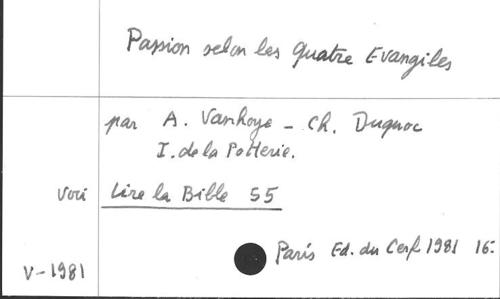 Passion selon les quatre Evangiles
par A. Vanhoye - Ch. Duquoc
I. de la Potterie.
Voir Lire la Bible 55
Paris Ed. du Cerf 1981 16-
V-1981